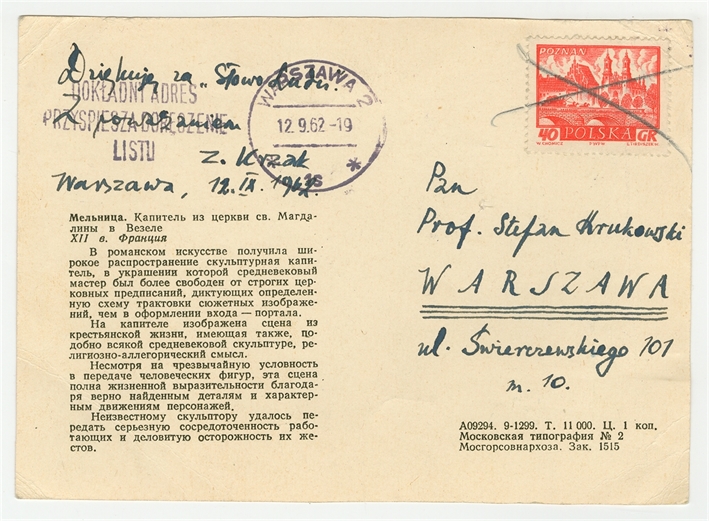 Dziękuję za „Słowo
Z poważaniem
Z. Kyzak
Warszawa, 12.IX.1962.
DOKŁADNY ADRES
PRZYSPIESZA DORĘCZENIE
LISTU
WARSZAWA 2
12.9.62-19
POZNAŃ
40 POLSKA GR
Pan
Prof. Stefan Krukowski
WARSZAWA
ul. Świerczewskiego 101
m. 10.
Мельница. Капитель из церкви св. Магда-
лины в Везеле
XII в. Франция
В романском искусстве получила ши-
рокое распространение скульптурная капи-
тель, в украшении которой средневековый
мастер был более свободен от строгих цер-
ковных предписаний, диктующих определен-
ную схему трактовки сюжетных изображе-
ний, чем в оформлении входа — портала.
На капителе изображена сцена из
крестьянской жизни, имеющая также, по-
добно всякой средневековой скульптуре, ре-
лигиозно-аллегорический смысл.
Несмотря на чрезвычайную условность
в передаче человеческих фигур, эта сцена
полна жизненной выразительности благода-
ря верно найденным деталям и характер-
ным движениям персонажей.
Неизвестному скульптору удалось пе-
редать серьезную сосредоточенность рабо-
тающих и деловитую осторожность их же-
стов.
А09294. 9-1299. Т. 11 000. Ц. 1 коп.
Московская типография № 2
Мосгорсовнархоза. Зак. 1515